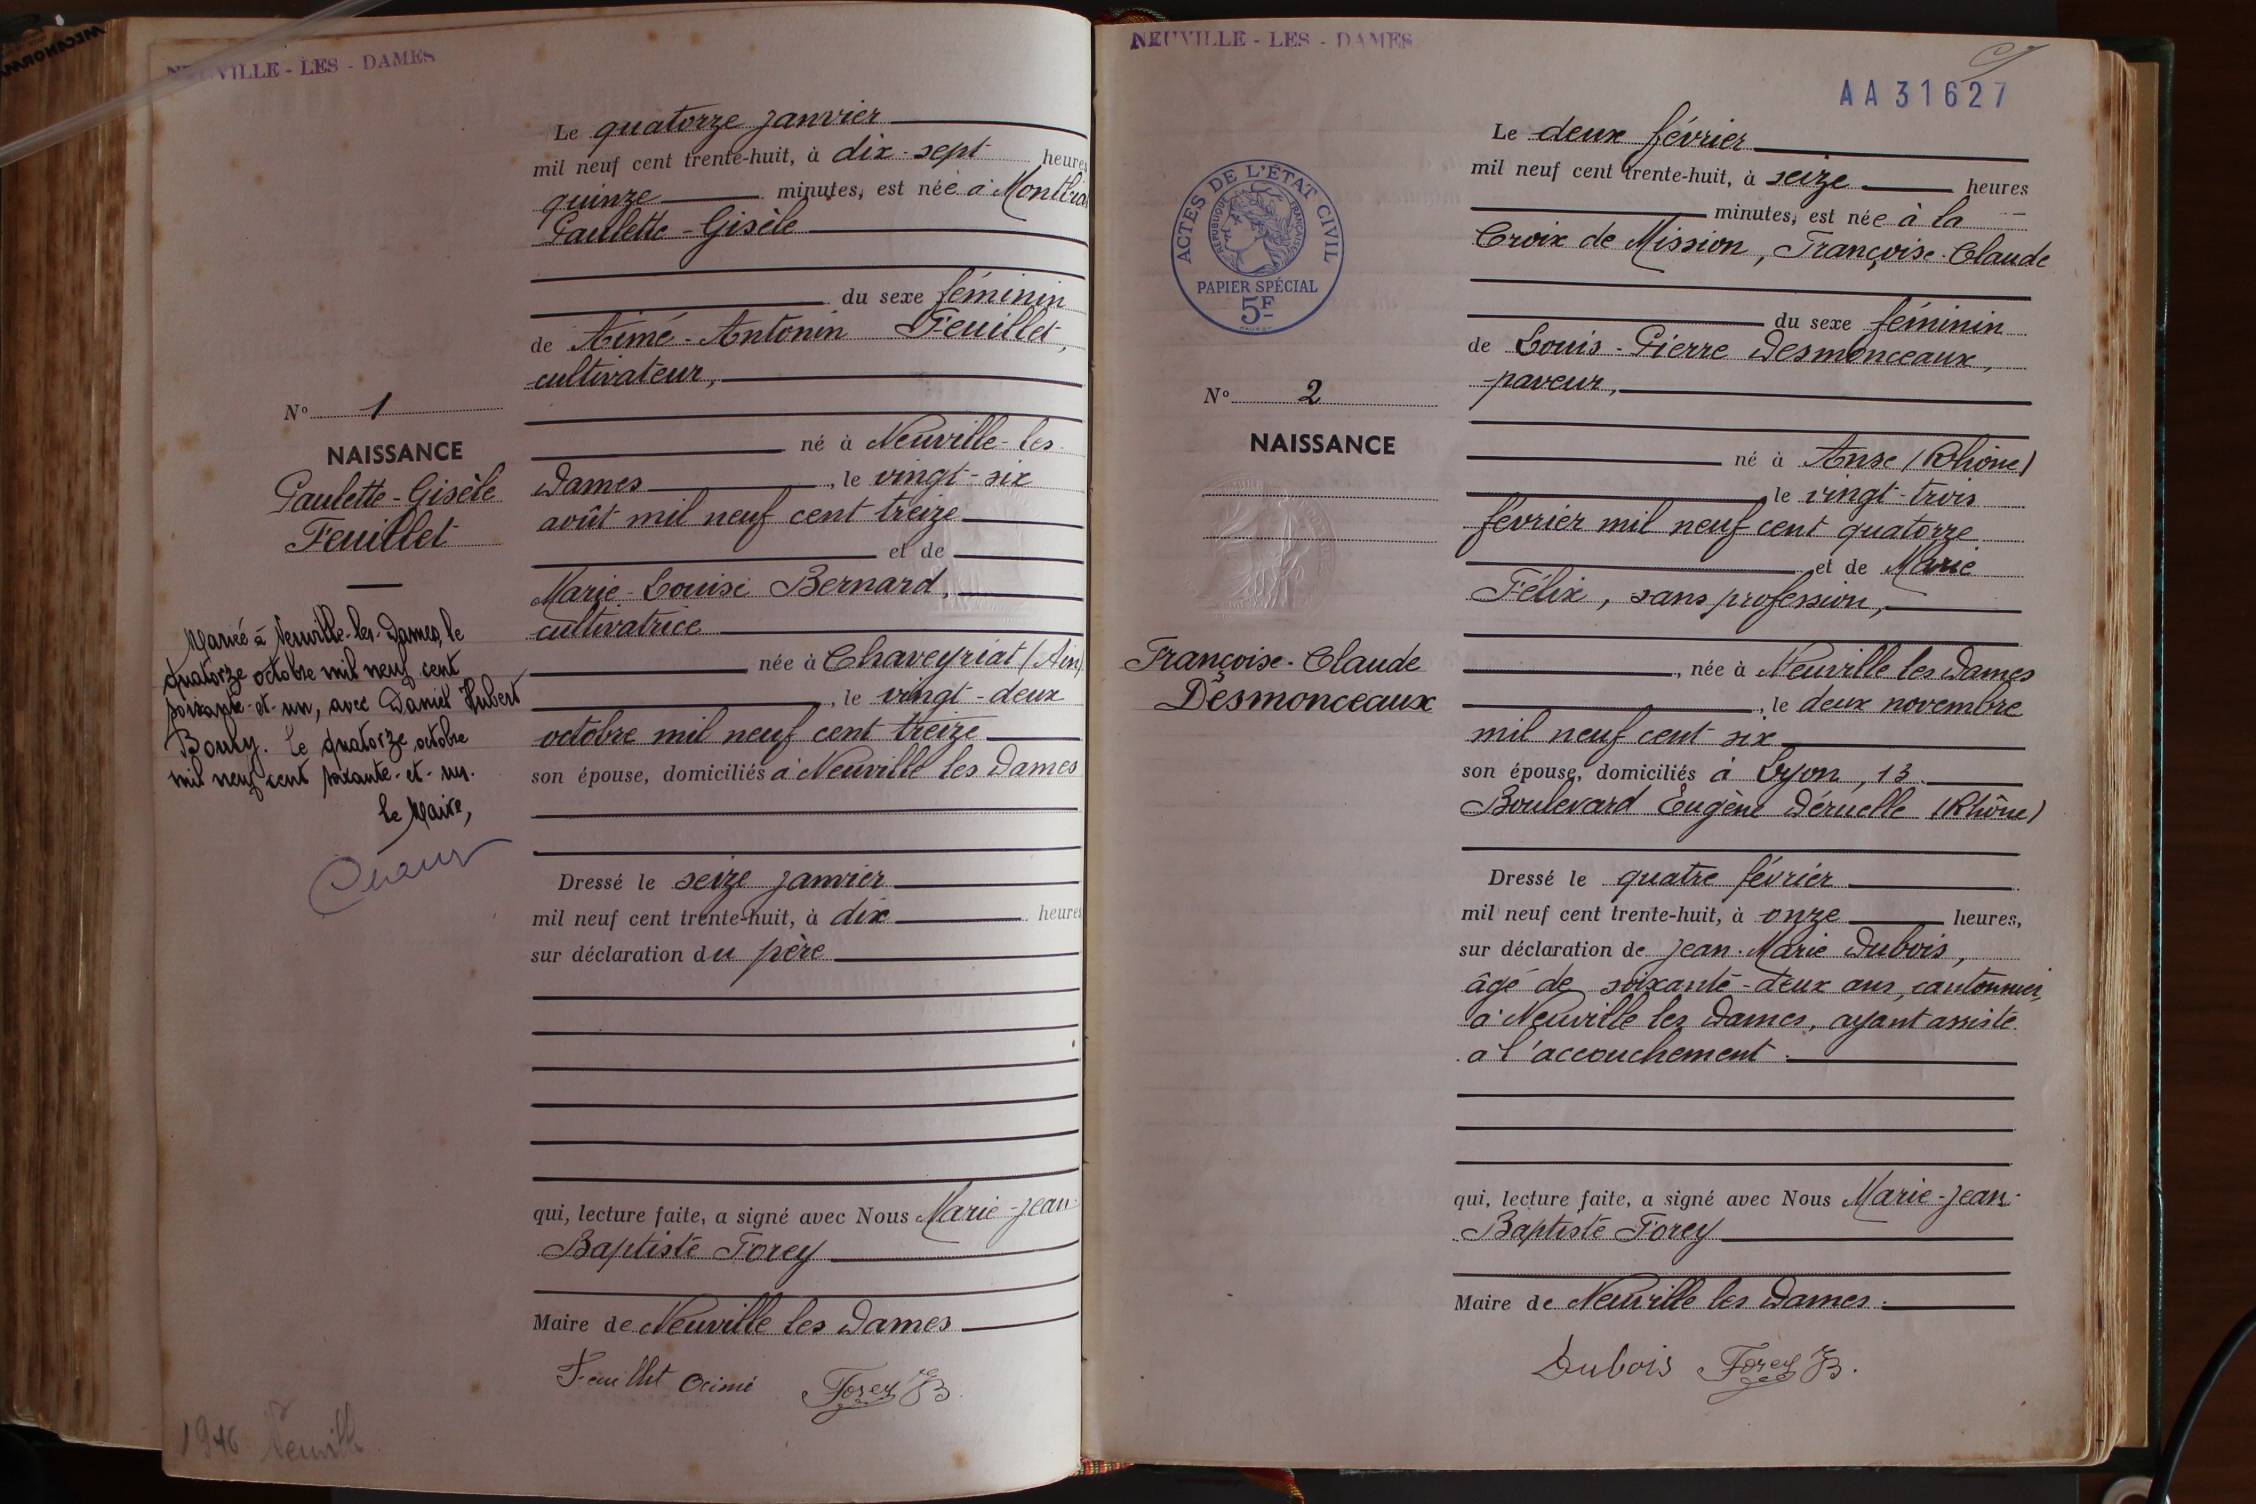 NEUVILLE - LES - DAMES
Le quatorze janvier
mil neuf cent trente-huit, à dix-sept heures
quinze minutes, est née à
Paulette-Gisèle
du sexe féminin
de Aimé-Antonin Feuillet,
cultivateur,
né à Neuville-les-
Dames, le vingt-six
août mil neuf cent treize
et de
Marie-Louise Bernard,
cultivatrice
née à Chaveyriat (Ain)
, le vingt-deux
octobre mil neuf cent treize
son épouse, domiciliés à Neuville les Dames
Dressé le seize janvier
mil neuf cent trente-huit, à dix heures
sur déclaration du père
qui, lecture faite, a signé avec Nous Marie-Jean-
Baptiste Forey
Maire de Neuville les Dames
Feuillet Aimé Forey JB.
No 1
NAISSANCE
Paulette-Gisèle
Feuillet
Mariée à Neuville-les-Dames, le
quatorze octobre mil neuf cent
soixante-et-un, avec Daniel Hubert
Bouly. Le quatorze octobre
mil neuf cent soixante-et-un.
Le Maire,
1946 Neuville
NEUVILLE - LES - DAMES
AA 31627
ACTES DE L'ÉTAT CIVIL
RÉPUBLIQUE FRANÇAISE
PAPIER SPÉCIAL
5F
No 2
NAISSANCE
Françoise-Claude
Desmonceaux
Le deux février
mil neuf cent trente-huit, à seize heures
minutes, est née à la
Croix de Mission, Françoise-Claude
du sexe féminin
de Louis-Pierre Desmonceaux,
paveur,
né à Anse (Rhône)
le vingt-trois
février mil neuf cent quatorze
et de Marie
Félix, sans profession,
, née à Neuville les Dames
, le deux novembre
mil neuf cent six
son épouse, domiciliés à Lyon, 13
Boulevard Eugène Déruelle (Rhône)
Dressé le quatre février
mil neuf cent trente-huit, à onze heures,
sur déclaration de Jean-Marie Dubois,
âgé de soixante-deux ans, cantonnier,
à Neuville les Dames, ayant assisté
à l'accouchement.
qui, lecture faite, a signé avec Nous Marie-Jean-
Baptiste Forey
Maire de Neuville les Dames.
Dubois Forey JB.